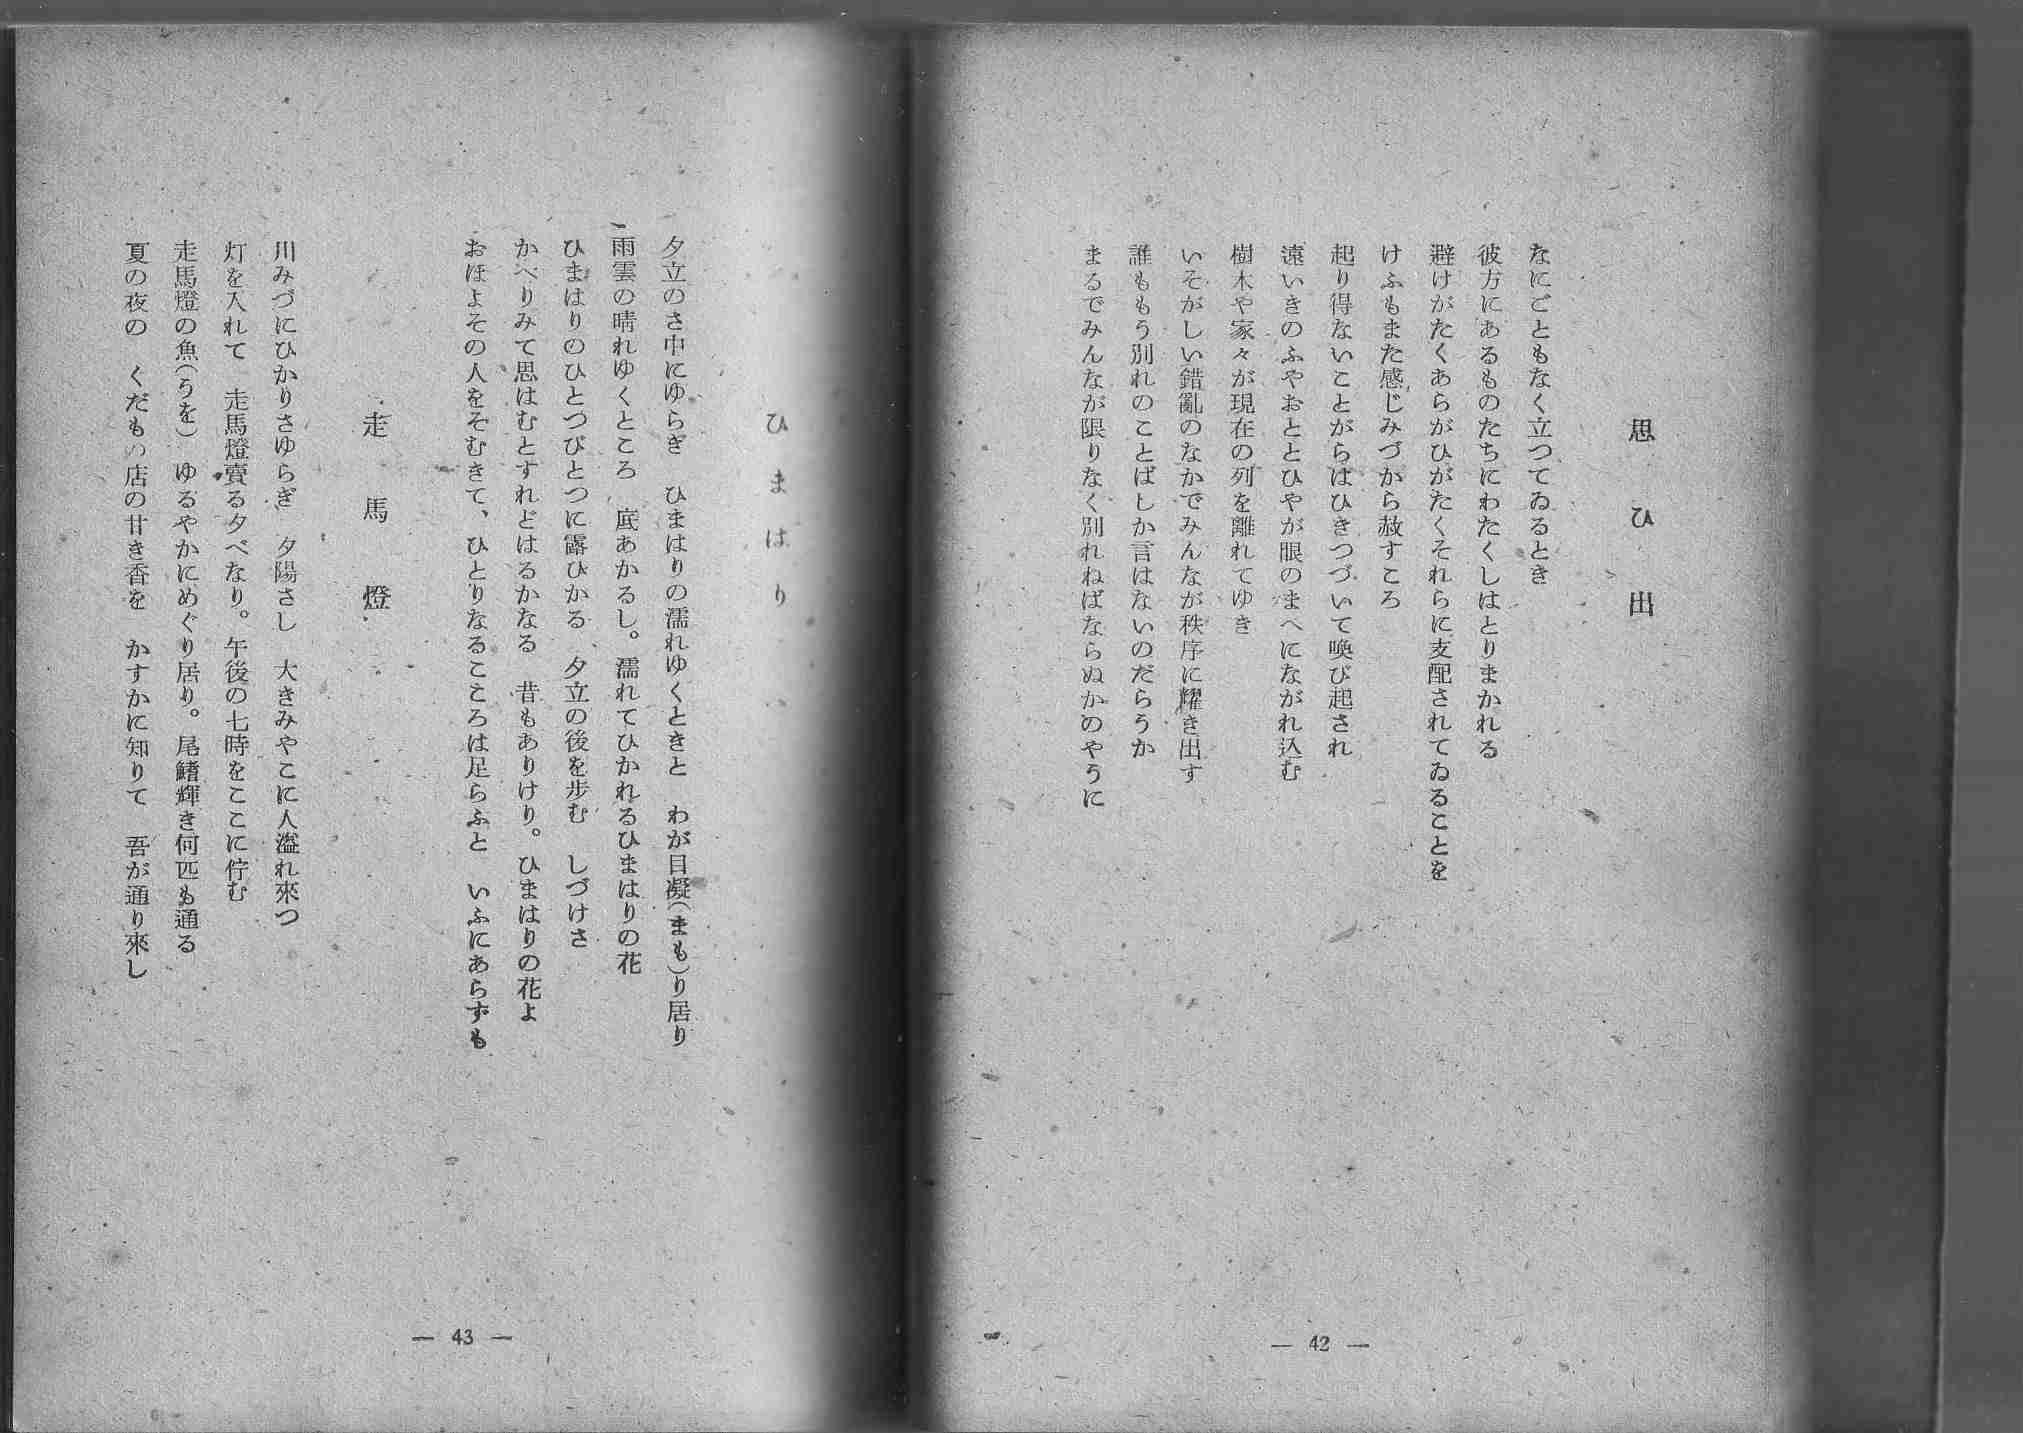 思ひ出
なにごともなく立つてゐるとき
彼方にあるものたちにわたくしはとりまかれる
避けがたくあらがひがたくそれらに支配されてゐることを
けふもまた感じみづから赦すころ
起り得ないことがらはひきつづいて喚び起され
遠いきのふやおととひやが眼のまへにながれ込む
樹木や家々が現在の列を離れてゆき
いそがしい錯亂のなかでみんなが秩序に耀き出す
誰ももう別れのことばしか言はないのだらうか
まるでみんなが限りなく別れねばならぬかのやうに
— 42 —
ひまはり
夕立のさ中にゆらぎ　ひまはりの濡れゆくときと　わが目凝(まも)り居り
雨雲の晴れゆくところ　底あかるし。濡れてひかれるひまはりの花
ひまはりのひとつびとつに露ひかる　夕立の後を歩む　しづけさ
かへりみて思はむとすれどはるかなる　昔もありけり。ひまはりの花よ
おほよその人をそむきて、ひとりなるこころは足らふと　いふにあらずも
走馬燈
川みづにひかりさゆらぎ　夕陽さし　大きみやこに人溢れ來つ
灯を入れて　走馬燈賣る夕べなり。午後の七時をここに佇む
走馬燈の魚(うを)　ゆるやかにめぐり居り。尾鰭輝き何匹も通る
夏の夜の　くだもの店の甘き香を　かすかに知りて　吾が通り來し
— 43 —